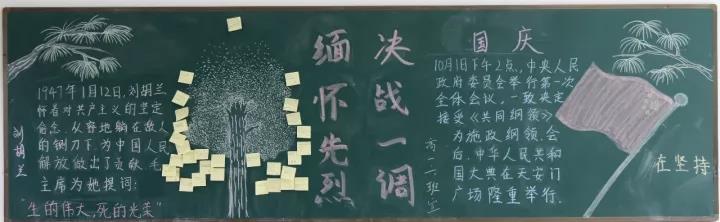 刘胡兰
1947年1月12日,刘胡兰
怀着对共产主义的坚定
信念,从容地躺在敌人
的铡刀下,为中国人民
解放做出了贡献.毛
主席为她提词:
"生的伟大,死的光荣"
缅怀先烈
决战一调
国庆
10月1日下午2点,中央人民
政府委员会举行第一次
全体会议,一致决定
接受《共同纲领》
为施政纲领.会
后,中华人民共和
国大典在天安门
广场隆重举行.
高一二班宣
在坚持